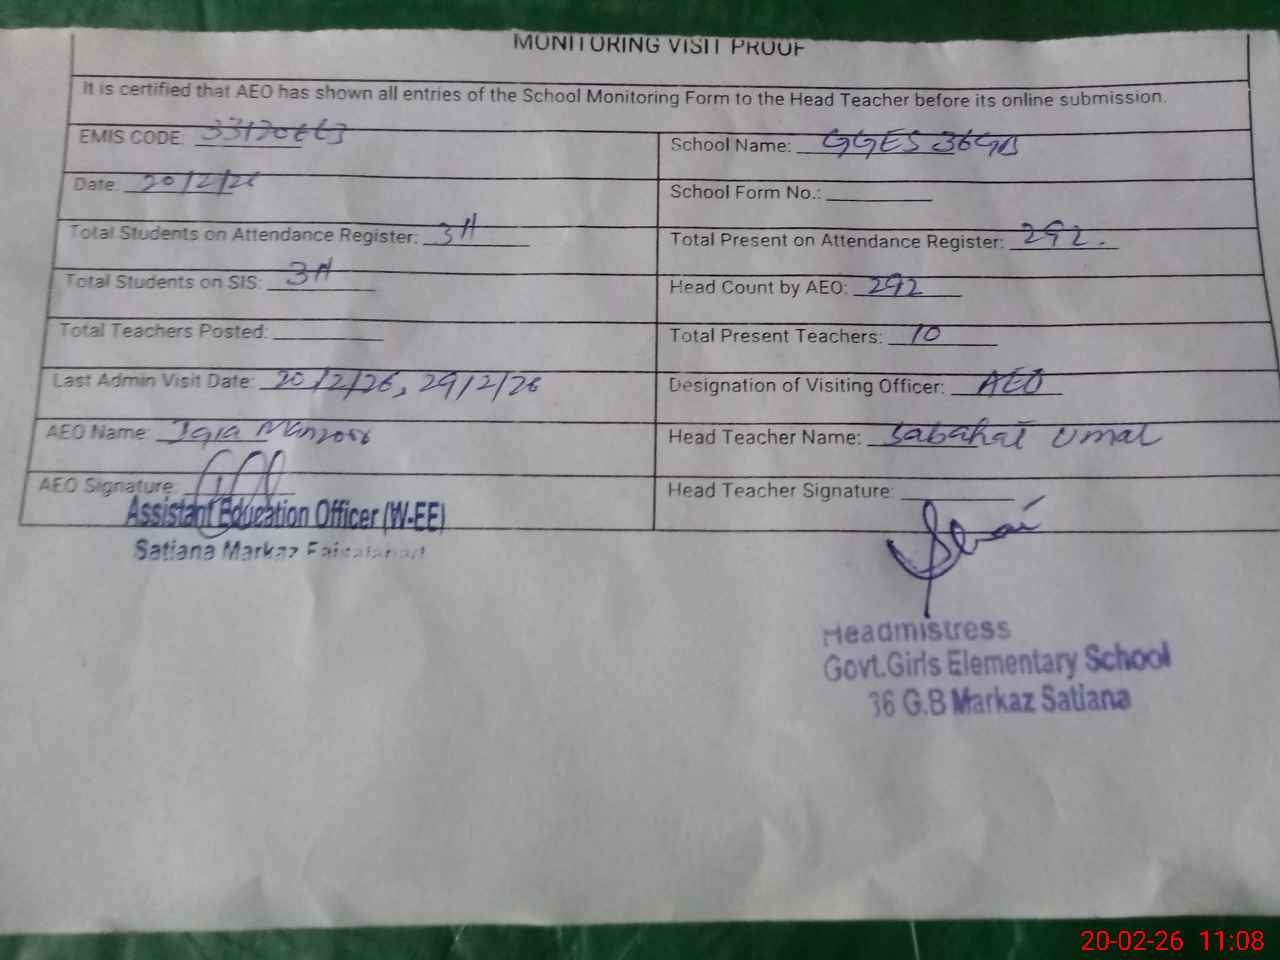 MONITORING VISIT PROOF
It is certified that AEO has shown all entries of the School Monitoring Form to the Head Teacher before its online submission.
EMIS CODE: 33120663
School Name: GGES 36GB
Date: 20/2/26
School Form No.:
Total Students on Attendance Register: 311
Total Present on Attendance Register: 292.
Total Students on SIS: 311
Head Count by AEO: 292
Total Teachers Posted:
Total Present Teachers: 10
Last Admin Visit Date: 20/2/26, 29/2/26
Designation of Visiting Officer: AEO
AEO Name: Iqra Manzoor
Head Teacher Name: Sabahat Umal
AEO Signature:
Head Teacher Signature:
Assistant Education Officer (W-EE)
Satiana Markaz Faisalabad
Headmistress
Govt.Girls Elementary School
36 G.B Markaz Satiana
20-02-26 11:08